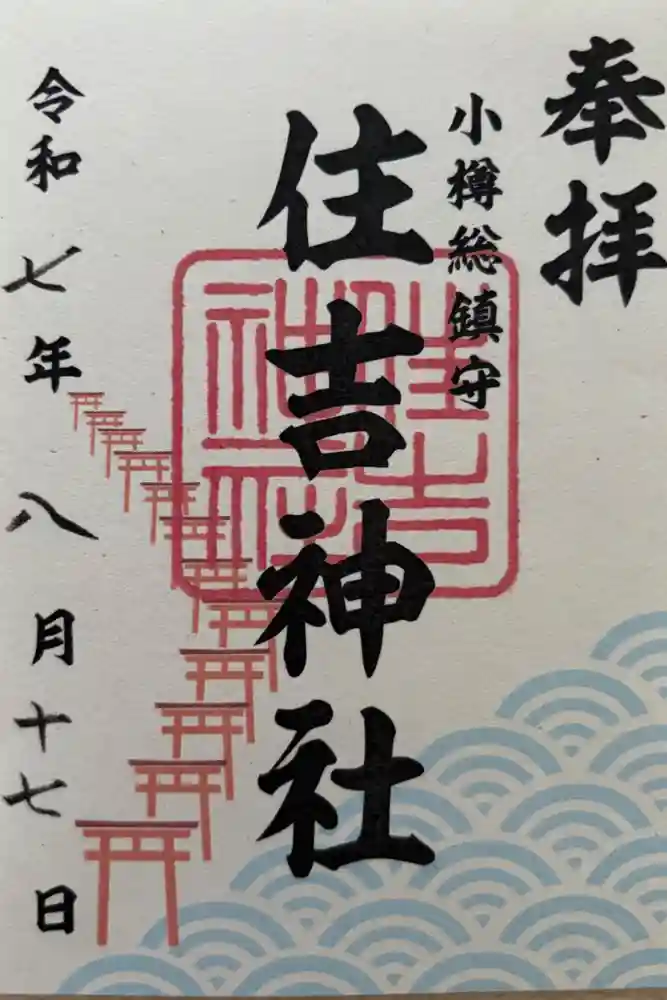 奉拝
小樽総鎮守
住吉神社
住吉
神社
令和七年八月十七日